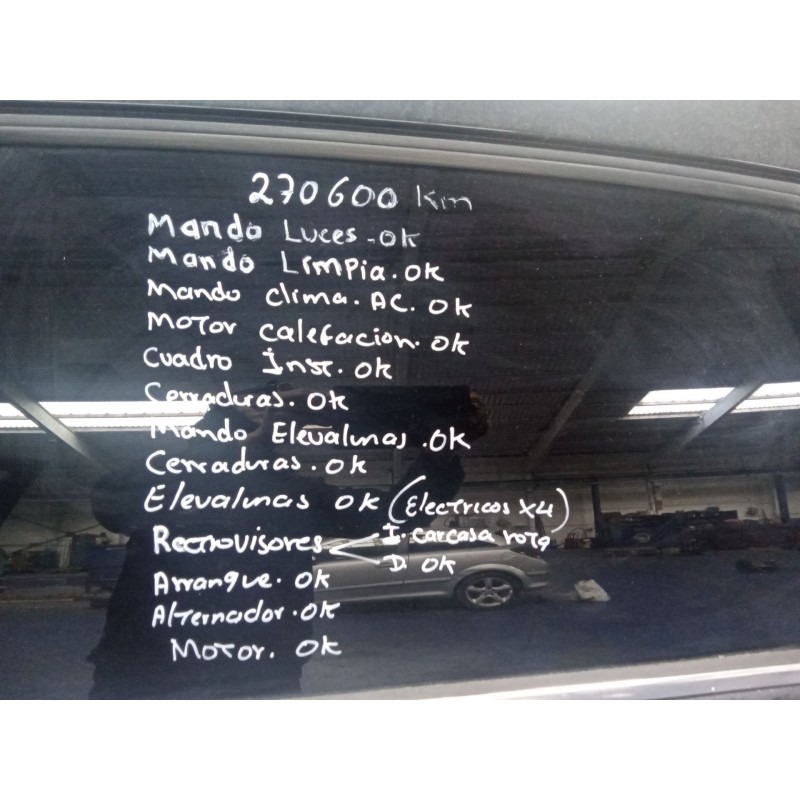 270600 Km
Mando Luces. OK
Mando Limpia. OK
Mando clima. AC. OK
Motor calefacion. OK
Cuadro Inst. OK
Cerraduras. OK
Mando Elevalunas. OK
Cerraduras. OK
Elevalunas OK (Electricos x4)
Retrovisores < I. carcasa rota
D. OK
Arranque. OK
Alternador. OK
Motor. OK